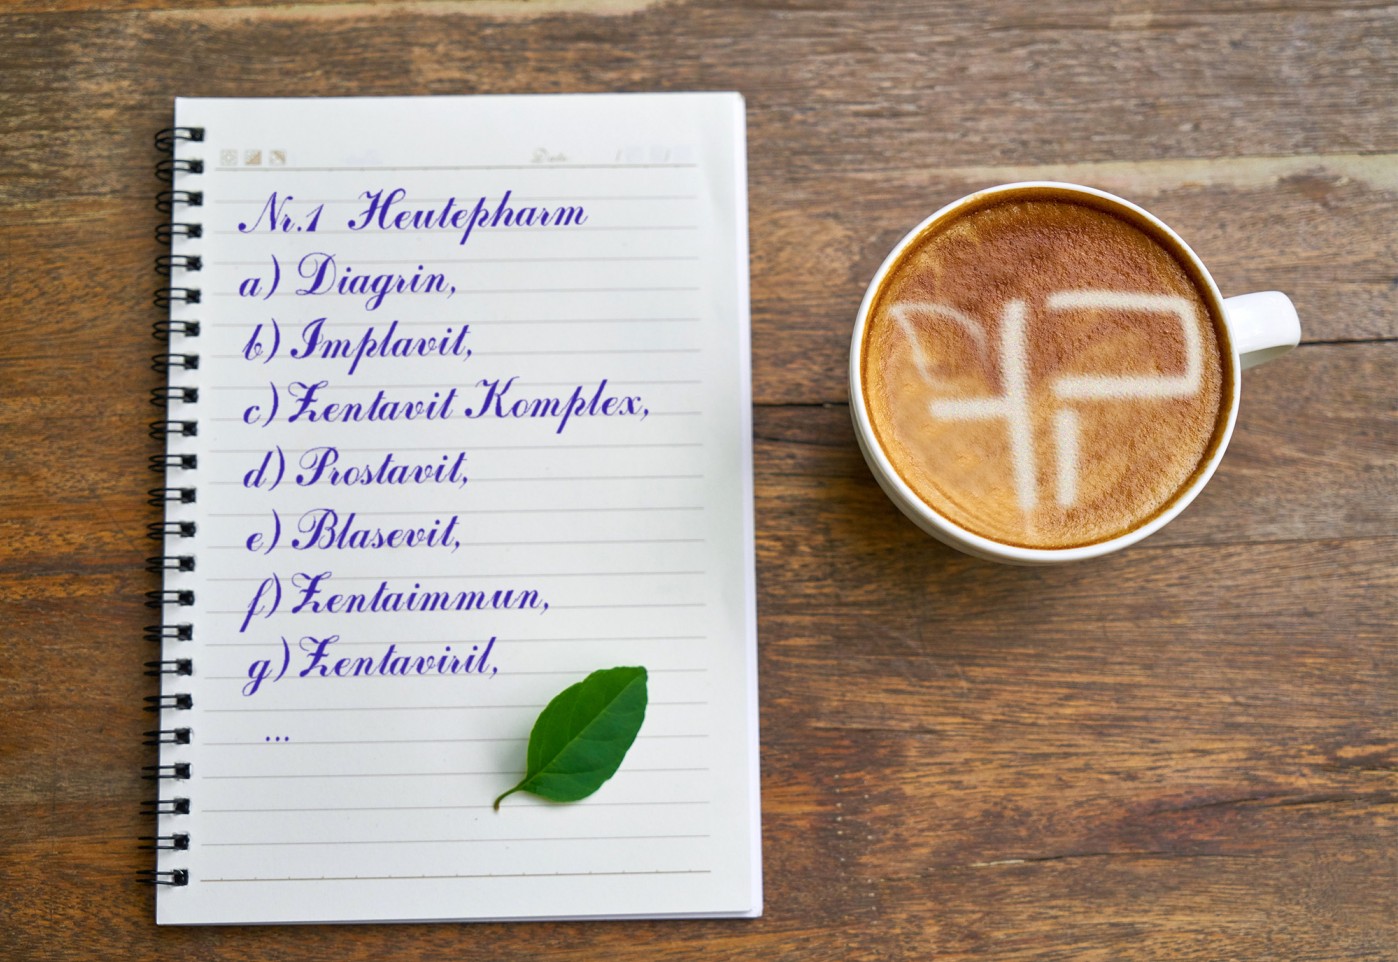 Nr.1 Heutepharm
a) Diagrin,
b) Implavit,
c) Zentavit Komplex,
d) Prostavit,
e) Blasevit,
f) Zentaimmun,
g) Zentaviril,
...